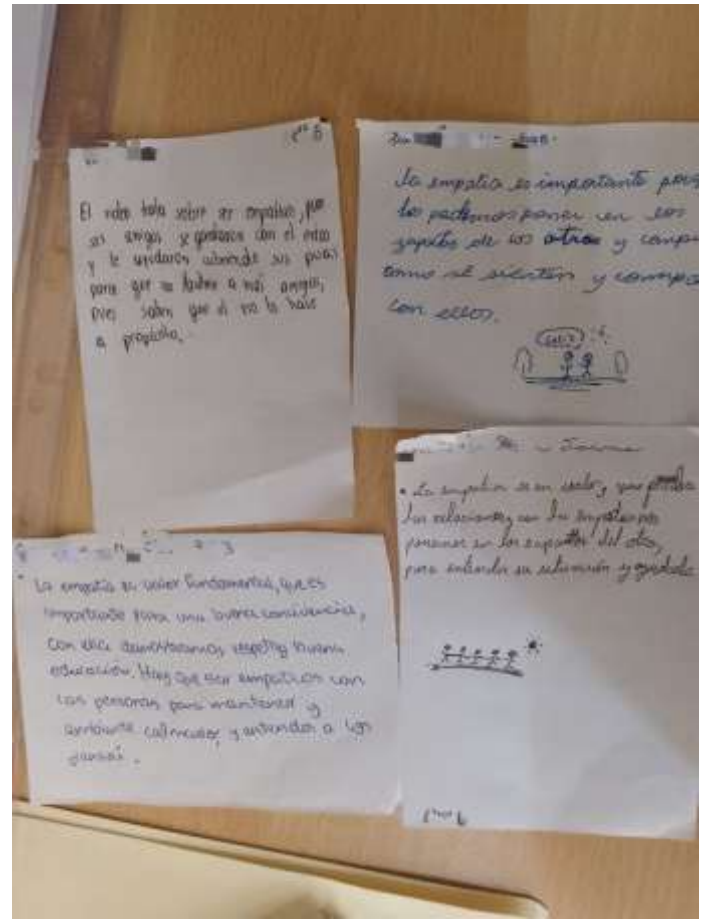 El video trata sobre ser empatico, por
sus amigos se quedaron con el erizo
y le ayudaron cubriendo sus puas
para que no lastime a más amigos,
pues saben que él no lo hace
a propósito.
La empatia es importante
los podemos poner en los
zapatos de los otros y
como se sienten y
con ellos.
• La empatia es un valor, que
las relaciones, con la empatia nos
ponemos en los zapatos del otro,
para entender su situación y ayudarlo
• La empatía es valor fundamental, que es
importante para una buena convivencia,
con ella demostramos respeto y buena
educación. Hay que ser empaticos con
las personas para mantener y
ambiente calmado, y entender a los